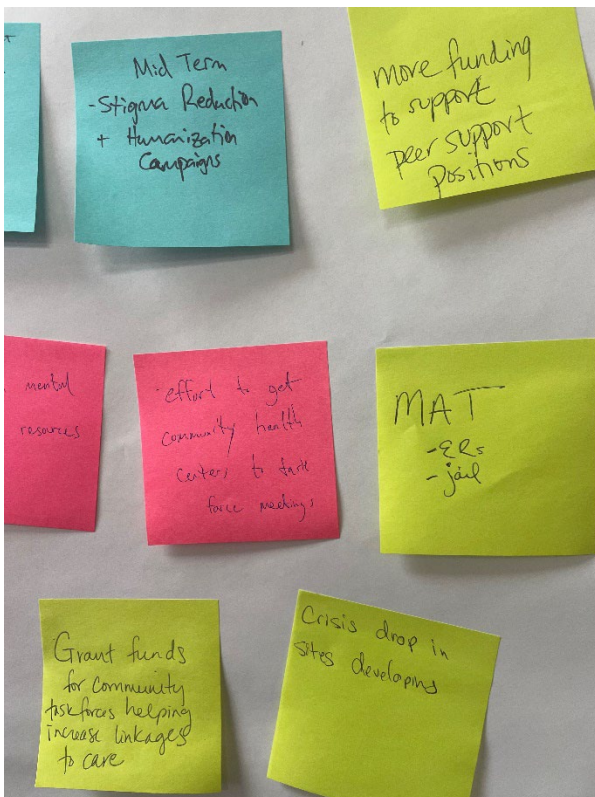 Mid Term
-Stigma Reduction
+ Humanization
Campaigns
more funding
to support
peer support
positions
mental
resources
effort to get
community health
centers to task
force meetings
MAT
-ERs
-jail
Grant funds
for community
taskforces helping
increase linkages
to care
Crisis drop in
sites developing